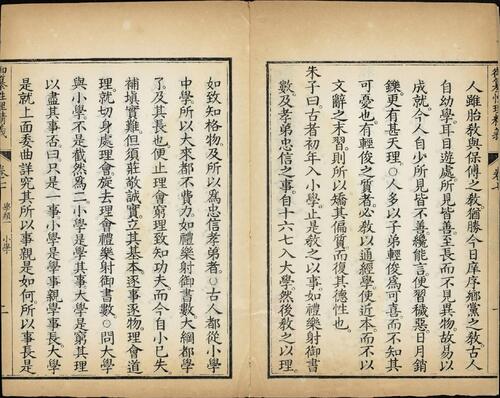 人雖胎敎與保傅之敎猶勝今日庠序鄉黨之敎古人
自幼學耳目遊處所見皆善至長而不見異物故易以
成就。今人自少所見皆不善纔能言便習穢惡日月銷
鑠更有甚天理○人多以子弟輕俊爲可喜而不知其
可憂也有輕俊之質者必敎以通經學使近本而不以
文辭之末習則所以矯其偏質而復其德性也。
朱子曰古者初年入小學止是敎之以事如禮樂射御書
數及孝弟忠信之事自十六七入大學然後敎之以理。
如致知格物及所以爲忠信孝弟者。○古人都從小學
中學所以大來都不費力如禮樂射御書數大綱都學
了及其長也便止理會窮理致知功夫而今自小已失
補塡實難但須莊敬誠實立其基本逐事逐物理會道
理就切身處理會旋去理會禮樂射御書數。○問大學
與小學不是截然爲二小學是學其事大學是窮其理
以盡其事否曰只是一事小學是學事親學事長大學
是就上面委曲詳究其所以事親是如何所以事長是
學類 小學
二